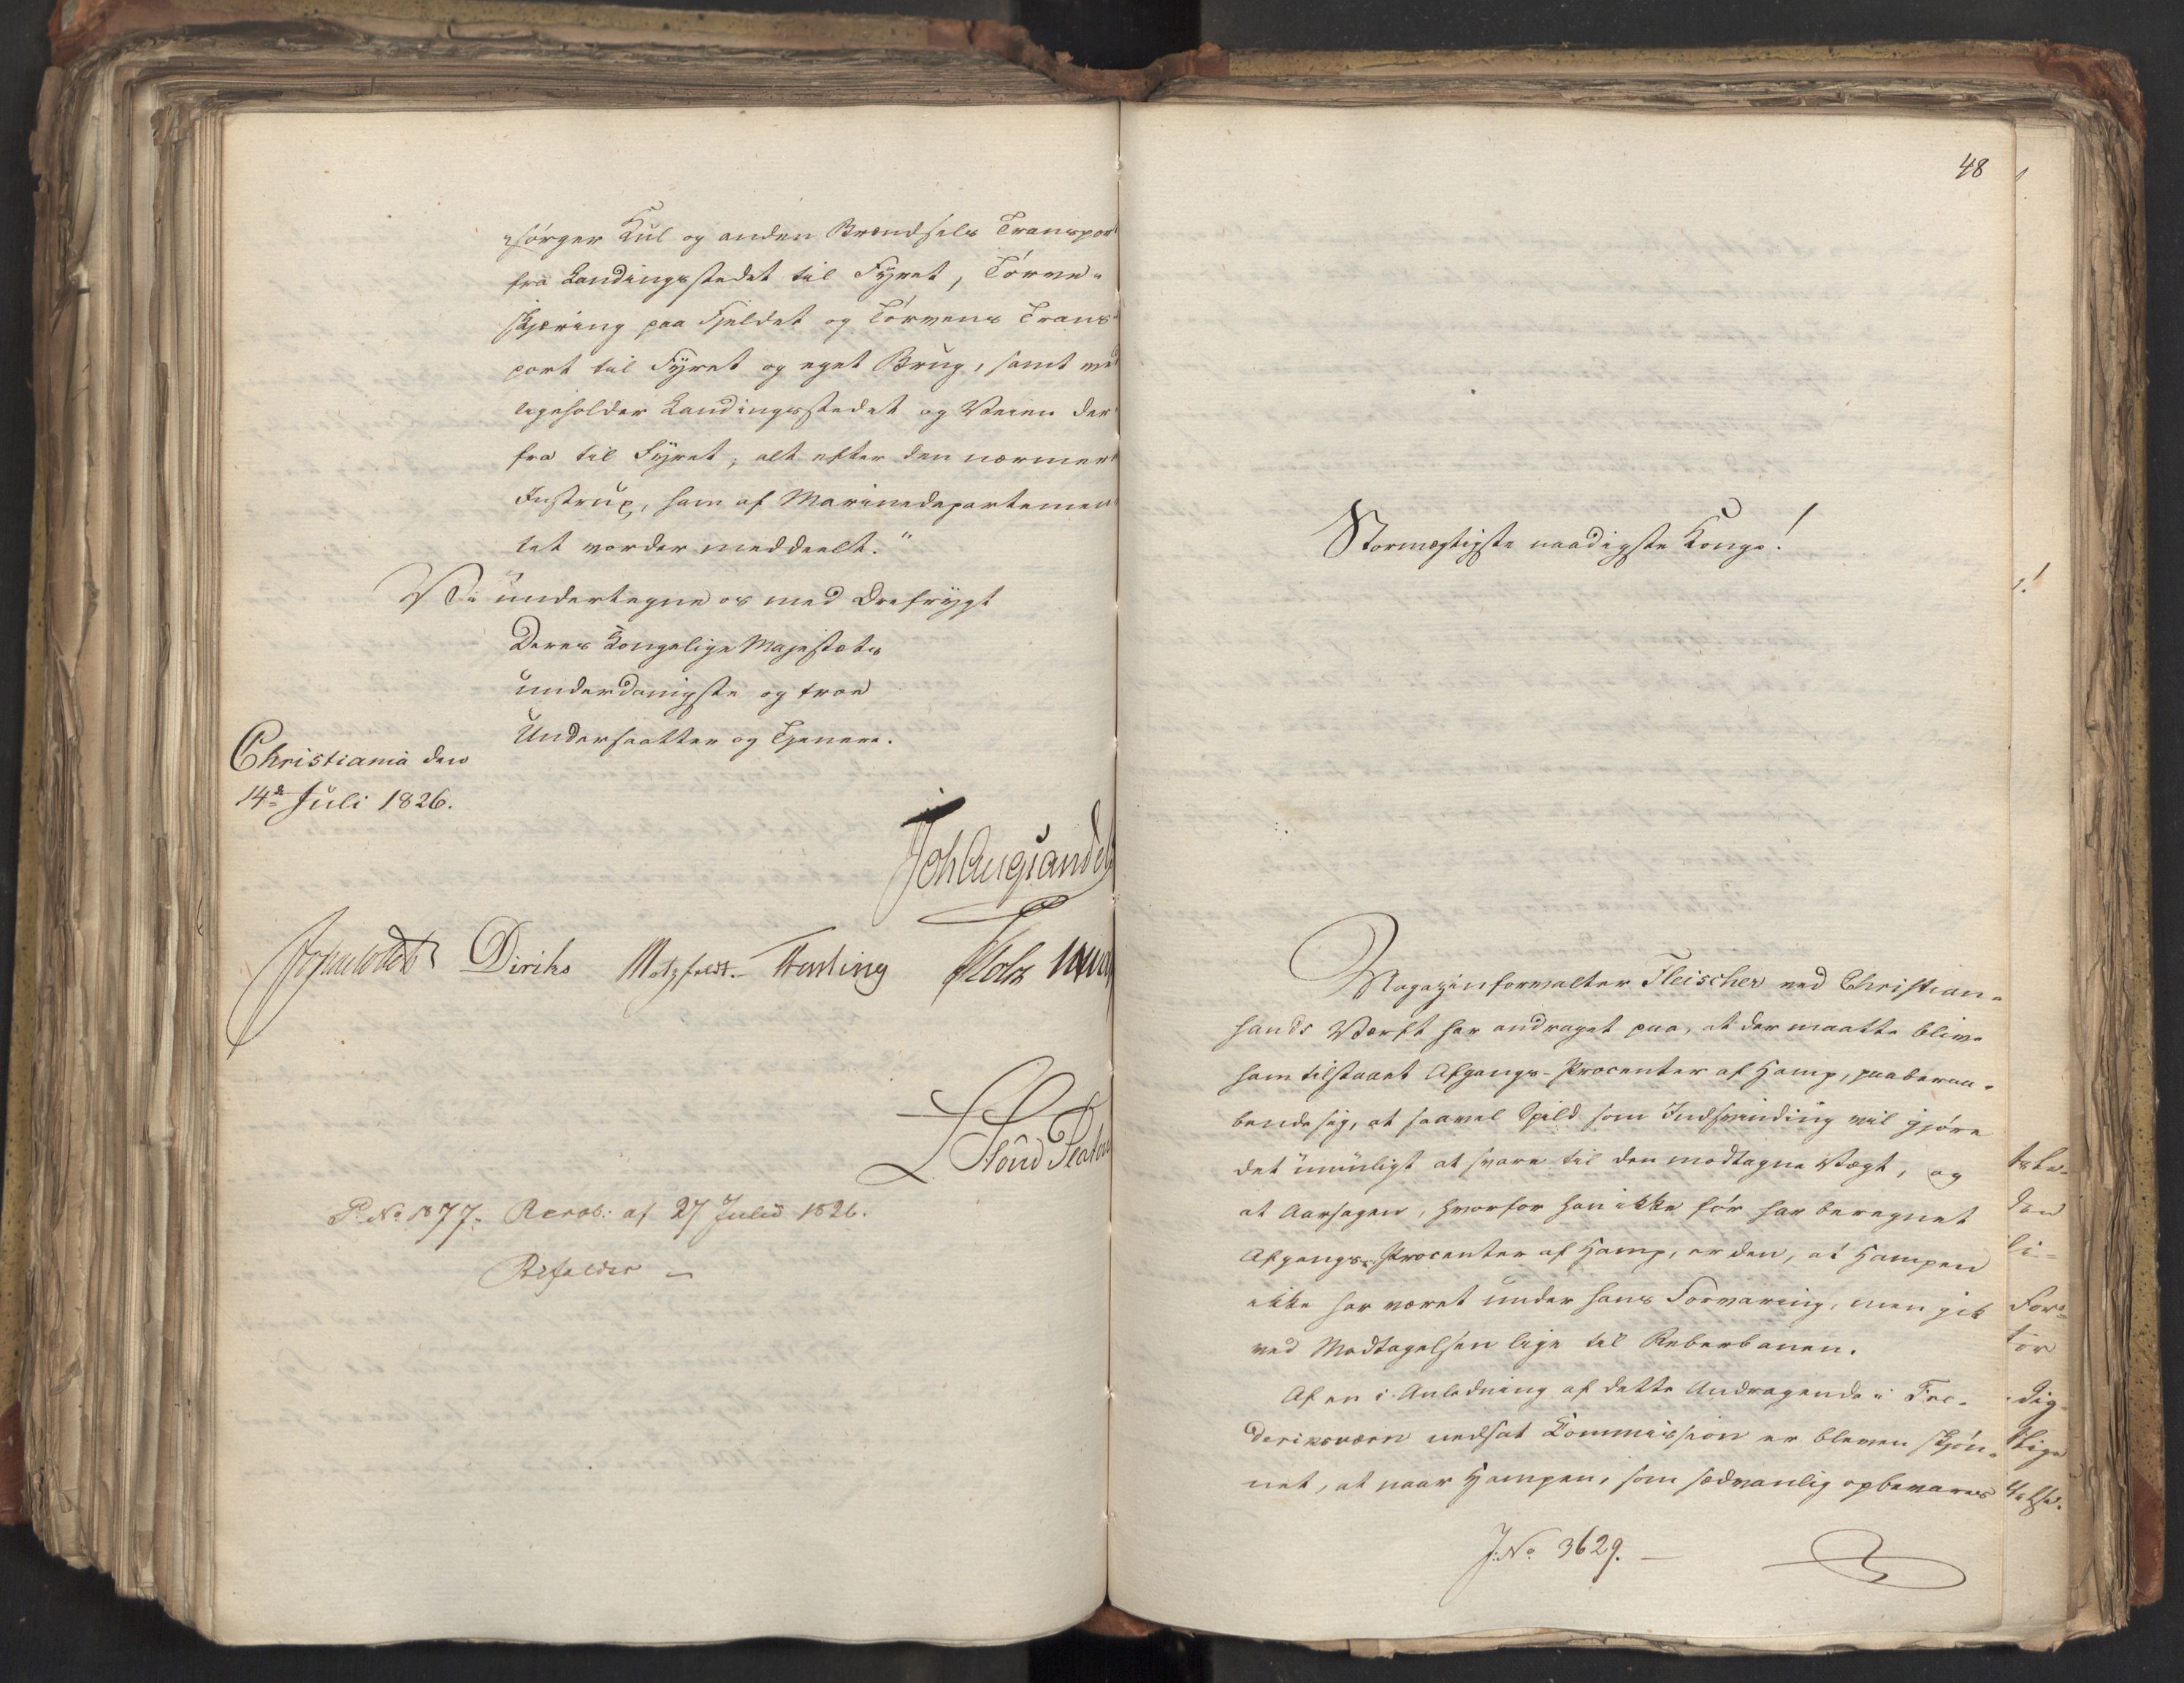 sørger Kul og anden Brændsels Transpor
fra Landingsstedet til Fyret, Tørve-
skjæring paa Fjeldet og Tørvens Trans
port til Fyret og eget Brug, samt ved
ligeholder Landingsstedet og Veien der
fra til Fyret, alt efter den nærmere
Instrux, som af Marinedepartemen
tet vorder meddeelt."
Vi undertegne os med Ærefrygt
Deres Kongelige Majestæts
underdanigste og troe
Undersaatter og Tjenere.
Christiania den
14de Juli 1826.
Joh Aug Sandels
Diriks Motzfeldt. Treschow Holst
P. No 1877. Resol: af 27 Julii 1826.
Bifaldes
48
Stormægtigste naadigste Konge!
Magazinforvalter Fleischer ved Christian-
sands Værft har andraget paa, at der maatte blive
ham tilstaaet Afgangs-Procenter af Hamp, paaberaa-
bende sig, at saavel Spild som Indsvinding vil gjøre
det umuligt at svare til den modtagne Vægt, og
at Aarsagen, hvorfor han ikke før har beregnet
Afgangs-Procenter af Hamp, er den, at Hampen
ikke har været under hans Forvaring, men gik
ved Modtagelsen lige til Reberbanen.
Af en i Anledning af dette Andragende i Fre-
deriksværn nedsat Kommission er bleven skjøn-
net, at naar Hampen, som sædvanlig opbevares
J. No 3629.